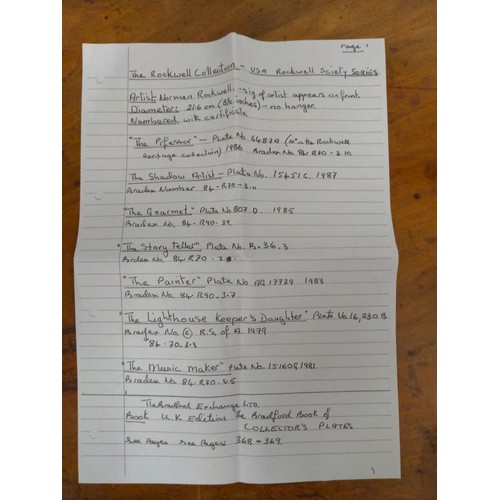 Page 1
The Rockwell Collection - USA Rockwell Society Series
Artist: Norman Rockwell, - sig of artist appears on front.
Diameter: 21.6 cm (8½ inches) - no hanger
Numbered, with certificate
"The Professor" - Plate No. 6487A (10th in the Rockwell
Heritage collection) 1986 Bradex No. 84 R70 - 3.10
The Shadow Artist - Plate No. 15451C. 1987
Bradex Number 84 - R70 - 3.11
"The Gourmet" Plate No. 807 D. 1985
Bradex No. 84 - R70 - 39.
"The Story Teller", Plate No. B. 36.3
Bradex No 84 R70 . 3
"The Painter" Plate No AQ 17739 1983
Bradex No. 84 R70 . 3.7
"The Lighthouse Keeper's Daughter" Plate No. 16,230.B
Bradex No. © R.S. of A. 1979
84 - 70.3.3
"The Music Maker" Plate No. 15160G 1981
Bradex No. 84 R70 . 3.5
The Bradford Exchange LTD.
Book U.K Edition The Bradford Book of
COLLECTOR'S PLATES
see Pages 368 - 369.